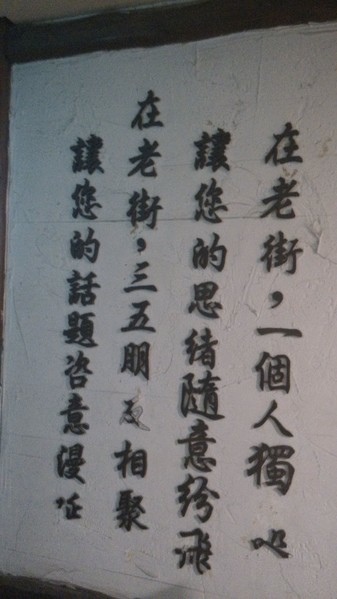 在老街，一個人獨
讓您的思緒隨意紛飛
在老街，三五朋友相聚
讓您的話題咨意漫